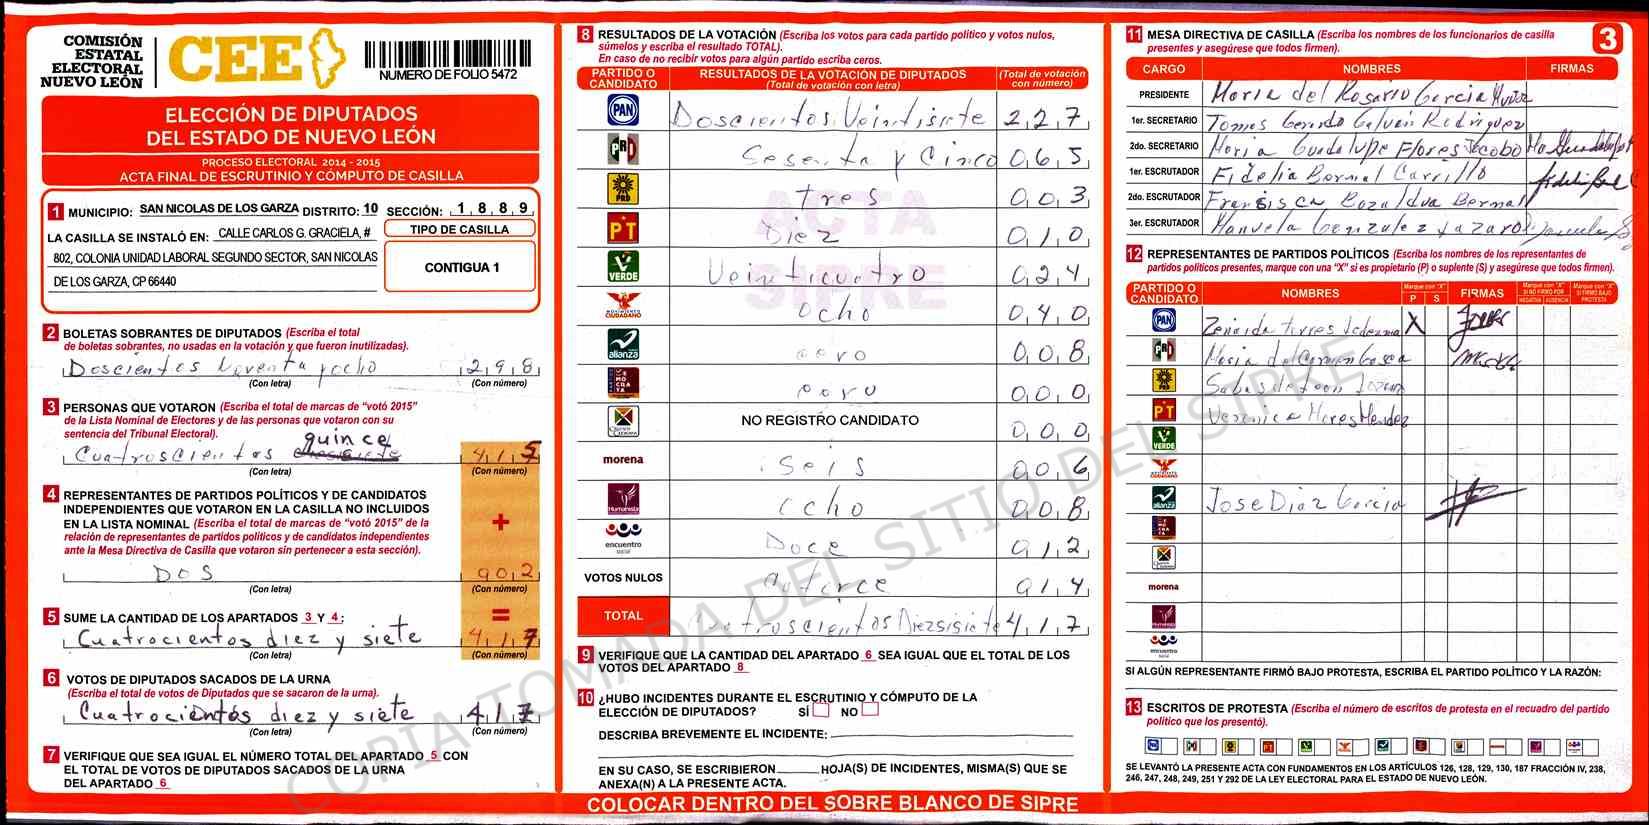 COMISIÓN
ESTATAL
ELECTORAL
NUEVO LEÓN
CEE
NUMERO DE FOLIO 5472
ELECCIÓN DE DIPUTADOS
DEL ESTADO DE NUEVO LEÓN
PROCESO ELECTORAL 2014 - 2015
ACTA FINAL DE ESCRUTINIO Y CÓMPUTO DE CASILLA
1 MUNICIPIO: SAN NICOLAS DE LOS GARZA DISTRITO: 10 SECCIÓN: 1 8 8 9
LA CASILLA SE INSTALÓ EN: CALLE CARLOS G. GRACIELA, #
802, COLONIA UNIDAD LABORAL SEGUNDO SECTOR, SAN NICOLAS
DE LOS GARZA, CP 66440
TIPO DE CASILLA
CONTIGUA 1
2 BOLETAS SOBRANTES DE DIPUTADOS (Escriba el total
de boletas sobrantes, no usadas en la votación y que fueron inutilizadas).
Doscientos Noventa y ocho 2 9 8
(Con letra) (Con número)
3 PERSONAS QUE VOTARON (Escriba el total de marcas de “votó 2015”
de la Lista Nominal de Electores y de las personas que votaron con su
sentencia del Tribunal Electoral).
quince
Cuatroscientos 4 1 5
(Con letra) (Con número)
4 REPRESENTANTES DE PARTIDOS POLÍTICOS Y DE CANDIDATOS
INDEPENDIENTES QUE VOTARON EN LA CASILLA NO INCLUIDOS
EN LA LISTA NOMINAL (Escriba el total de marcas de “votó 2015” de la
relación de representantes de partidos políticos y de candidatos independientes
ante la Mesa Directiva de Casilla que votaron sin pertenecer a esta sección).
+
DOS 0 0 2
(Con letra) (Con número)
5 SUME LA CANTIDAD DE LOS APARTADOS 3 Y 4: =
Cuatrocientos diez y siete 4 1 7
(Con letra) (Con número)
6 VOTOS DE DIPUTADOS SACADOS DE LA URNA
(Escriba el total de votos de Diputados que se sacaron de la urna).
Cuatrocientos diez y siete 4 1 7
(Con letra) (Con número)
7 VERIFIQUE QUE SEA IGUAL EL NÚMERO TOTAL DEL APARTADO 5 CON
EL TOTAL DE VOTOS DE DIPUTADOS SACADOS DE LA URNA
DEL APARTADO 6
8 RESULTADOS DE LA VOTACIÓN (Escriba los votos para cada partido político y votos nulos,
súmelos y escriba el resultado TOTAL).
En caso de no recibir votos para algún partido escriba ceros.
PARTIDO O CANDIDATO RESULTADOS DE LA VOTACIÓN DE DIPUTADOS (Total de votación con letra) (Total de votación con número)
PAN Doscientos Veintisiete 2 2 7
PRI Sesenta y Cinco 0 6 5
PRD tres 0 0 3
PT Diez 0 1 0
VERDE Veinticuatro 0 2 4
MOVIMIENTO CIUDADANO Ocho 0 4 0
alianza cero 0 0 8
cero 0 0 0
NO REGISTRO CANDIDATO 0 0 0
morena Seis 0 0 6
Humanista Ocho 0 0 8
encuentro social Doce 0 1 2
VOTOS NULOS Catorce 0 1 4
TOTAL Cuatroscientos Diezsisiete 4 1 7
ACTA
SIPRE
9 VERIFIQUE QUE LA CANTIDAD DEL APARTADO 6 SEA IGUAL QUE EL TOTAL DE LOS
VOTOS DEL APARTADO 8
10 ¿HUBO INCIDENTES DURANTE EL ESCRUTINIO Y CÓMPUTO DE LA
ELECCIÓN DE DIPUTADOS? SÍ NO
DESCRIBA BREVEMENTE EL INCIDENTE:
EN SU CASO, SE ESCRIBIERON HOJA(S) DE INCIDENTES, MISMA(S) QUE SE
ANEXA(N) A LA PRESENTE ACTA.
COLOCAR DENTRO DEL SOBRE BLANCO DE SIPRE
11 MESA DIRECTIVA DE CASILLA (Escriba los nombres de los funcionarios de casilla
presentes y asegúrese que todos firmen).
3
CARGO NOMBRES FIRMAS
PRESIDENTE Maria del Rosario Garcia Muñoz
1er. SECRETARIO Tomas Gerardo Galván Rodriguez
2do. SECRETARIO Maria Guadalupe Flores Jacobo
1er. ESCRUTADOR Fidelia Bernal Carrillo
2do. ESCRUTADOR Francisca Bozaldua Bernal
3er. ESCRUTADOR Manuela Gonzalez Lazaro
12 REPRESENTANTES DE PARTIDOS POLÍTICOS (Escriba los nombres de los representantes de
partidos políticos presentes, marque con una “X” si es propietario (P) o suplente (S) y asegúrese que todos firmen).
PARTIDO O CANDIDATO NOMBRES Marque con “X” P S FIRMAS Marque con “X” SI NO FIRMÓ POR NEGATIVA AUSENCIA Marque con “X” SI FIRMÓ BAJO PROTESTA
PAN Zenaida Torres X
PRI Maria del Carmen
PRD
PT Veronica Flores Mendez
VERDE
alianza Jose Diaz Garcia
morena
encuentro social
SI ALGÚN REPRESENTANTE FIRMÓ BAJO PROTESTA, ESCRIBA EL PARTIDO POLÍTICO Y LA RAZÓN:
13 ESCRITOS DE PROTESTA (Escriba el número de escritos de protesta en el recuadro del partido
político que los presentó).
SE LEVANTÓ LA PRESENTE ACTA CON FUNDAMENTOS EN LOS ARTÍCULOS 126, 128, 129, 130, 187 FRACCIÓN IV, 238,
246, 247, 248, 249, 251 Y 292 DE LA LEY ELECTORAL PARA EL ESTADO DE NUEVO LEÓN.
COPIA TOMADA DEL SITIO DEL SIPRE